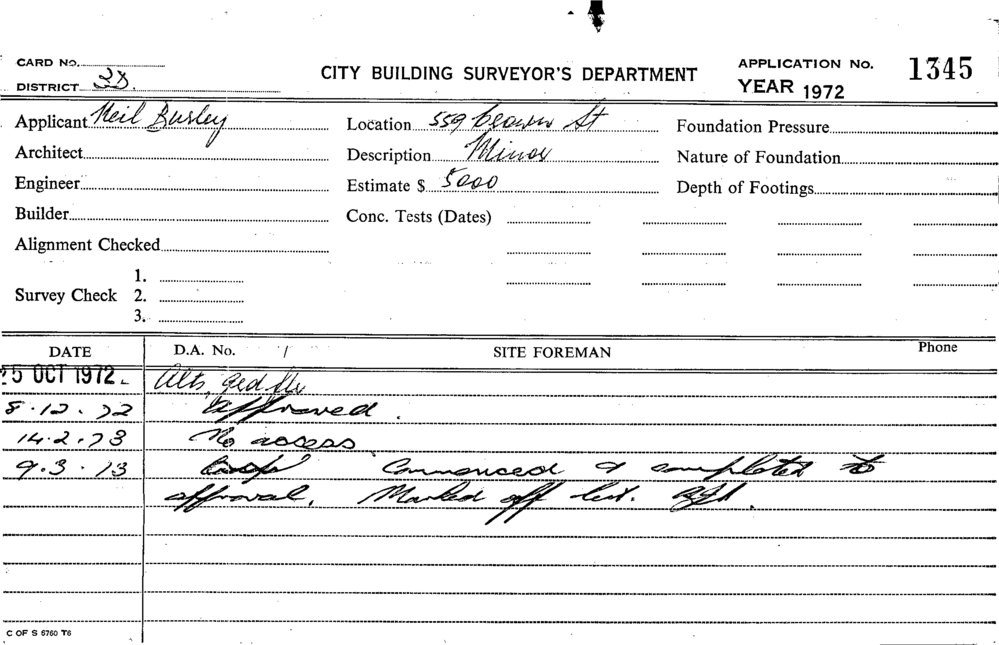 CARD No.
DISTRICT 3D.
CITY BUILDING SURVEYOR'S DEPARTMENT
APPLICATION No. 1345
YEAR 1972
Applicant Neil Burley
Location 559 St
Foundation Pressure
Architect
Description Minor
Nature of Foundation
Engineer
Estimate $ 5000
Depth of Footings
Builder
Conc. Tests (Dates)
Alignment Checked
1.
Survey Check 2.
3.
DATE D.A. No. / SITE FOREMAN Phone
25 OCT 1972 Alts ged flr
8.12.72 approved.
14.2.73 No access
9.3.73 Commenced & completed to
approval. Marked off list.
C OF S 5760 T6